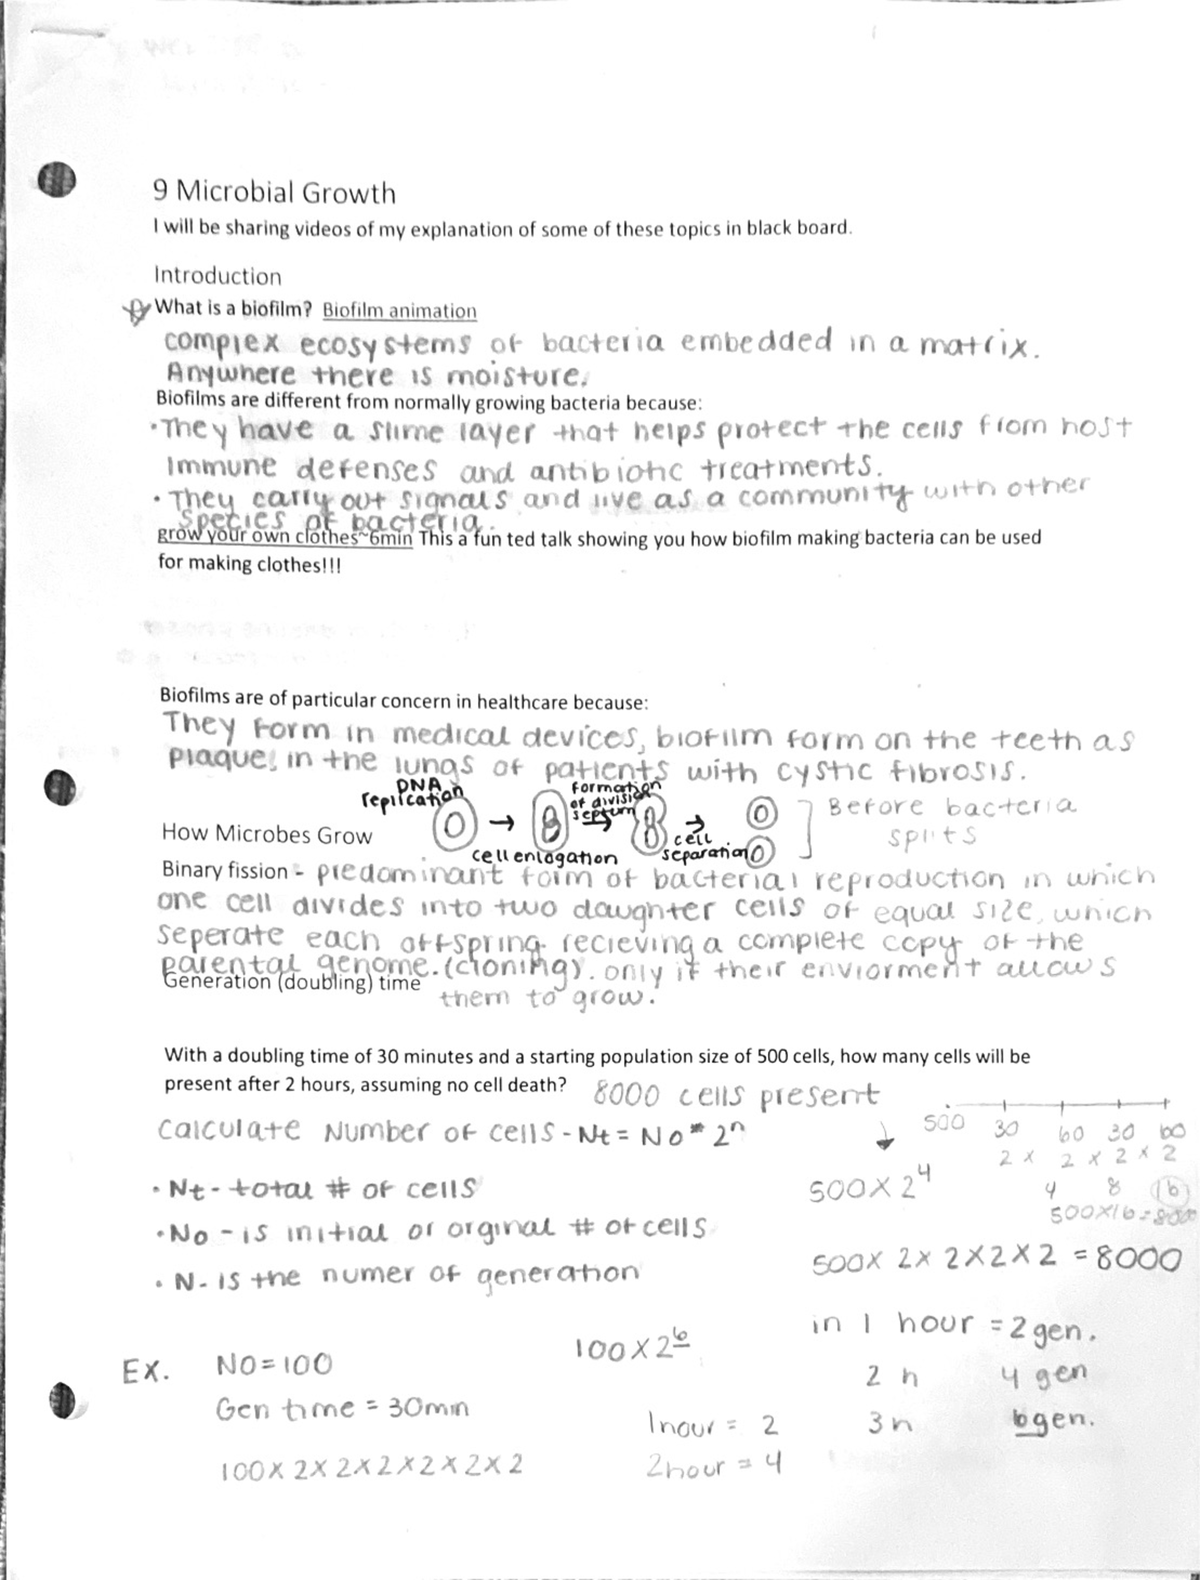 9 Microbial Growth
I will be sharing videos of my explanation of some of these topics in black board.
Introduction
What is a biofilm? Biofilm animation
complex ecosystems of bacteria embedded in a matrix.
Anywhere there is moisture.
Biofilms are different from normally growing bacteria because:
• They have a slime layer that helps protect the cells from host
immune defenses and antibiotic treatments.
• They carry out signals and live as a community with other
species of bacteria.
grow your own clothes~6min This a fun ted talk showing you how biofilm making bacteria can be used
for making clothes!!!
Biofilms are of particular concern in healthcare because:
They form in medical devices, biofilm form on the teeth as
plaque, in the lungs of patients with cystic fibrosis.
DNA replication
formation of division septum
cell enlogation
cell separation
Before bacteria
splits
How Microbes Grow
Binary fission - predominant form of bacterial reproduction in which
one cell divides into two daughter cells of equal size, which
seperate each offspring recieving a complete copy of the
parental genome. (cloning). only if their enviorment allows
them to grow.
Generation (doubling) time
With a doubling time of 30 minutes and a starting population size of 500 cells, how many cells will be
present after 2 hours, assuming no cell death? 8000 cells present
Calculate Number of cells - Nt = No * 2ⁿ
500 30 60 30 60
2 x 2 x 2 x 2
4 8 16
500x16=8000
• Nt - total # of cells
500 X 2⁴
• No - is initial or orginal # of cells
• N - is the numer of generation
500 x 2 x 2 x 2 x 2 = 8000
in 1 hour = 2 gen.
2 h 4 gen
3 h 6 gen.
Ex. No = 100
100 X 2⁶
Gen time = 30min
1 hour = 2
100 x 2 x 2 x 2 x 2 x 2 x 2
2 hour = 4